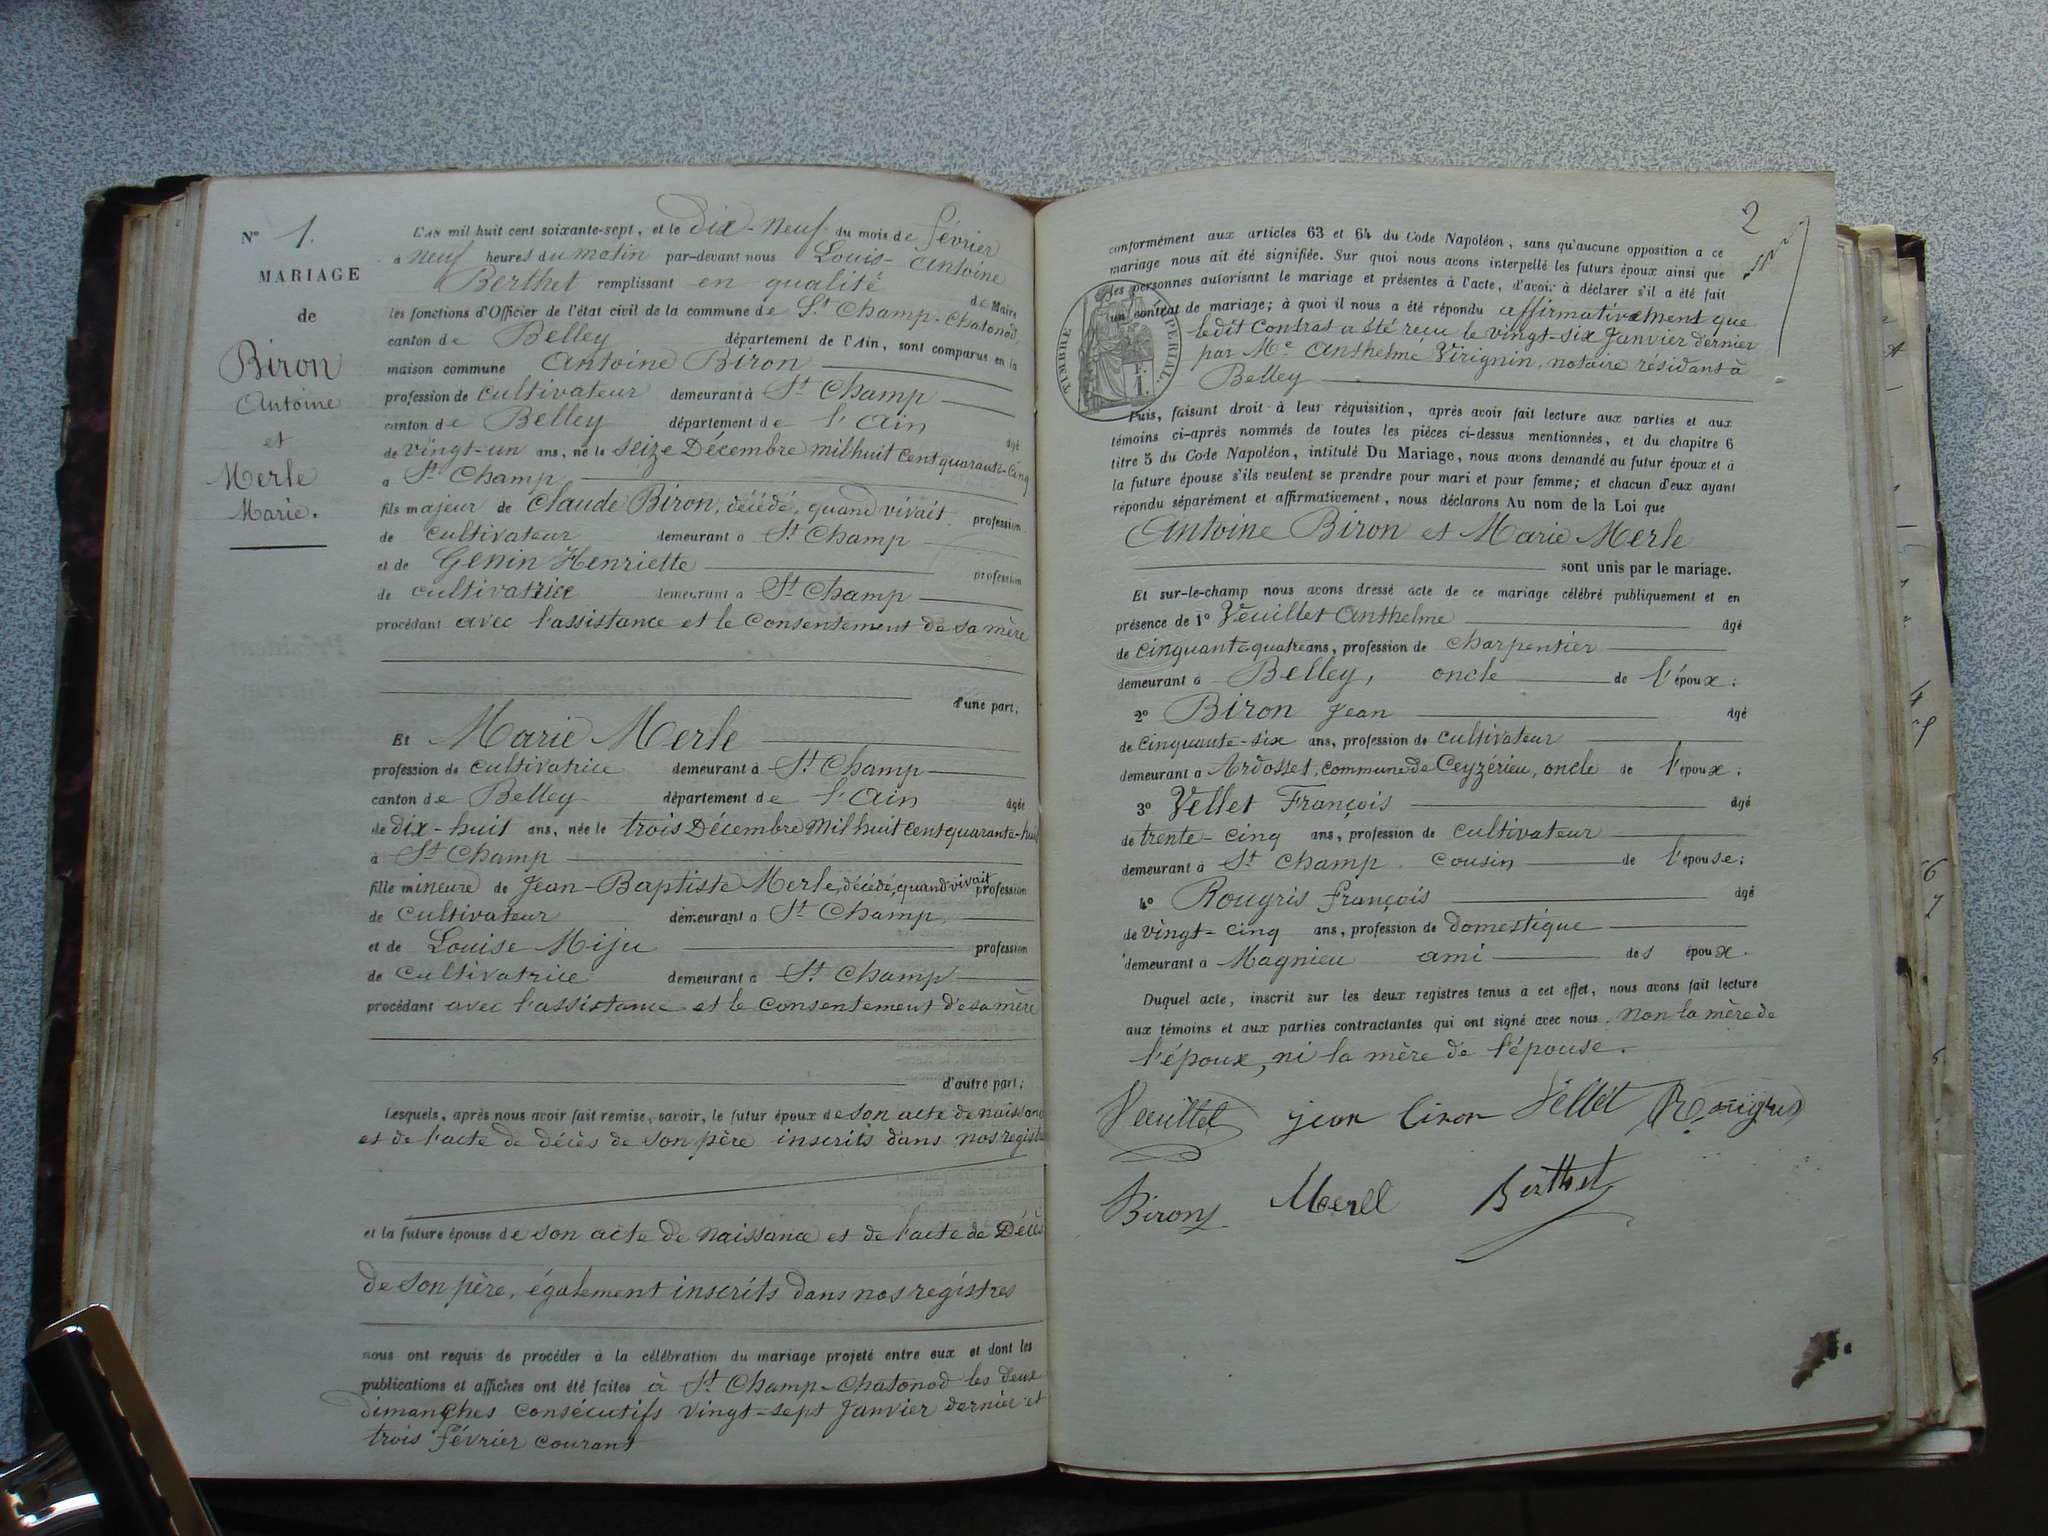 N° 1.
MARIAGE
de
Biron
Antoine
et
Merle
Marie.
L'AN mil huit cent soixante-sept, et le dix-neuf du mois de février
à neuf heures du matin par-devant nous Louis-Antoine
Berthet remplissant en qualité de Maire
les fonctions d'Officier de l'état civil de la commune de St Champ-Chatonod,
canton de Belley département de l'Ain, sont comparus en la
maison commune Antoine Biron
profession de cultivateur demeurant à St Champ
canton de Belley département de l'Ain âgé
de vingt-un ans, né le seize Décembre mil huit cent quarante-cinq
à St Champ
fils majeur de Claude Biron, décédé, quand vivait, profession
de cultivateur demeurant à St Champ
et de Genin Henriette profession
de cultivatrice demeurant à St Champ
procédant avec l'assistance et le consentement de sa mère
d'une part,
Et Marie Merle
profession de cultivatrice demeurant à St Champ
canton de Belley département de l'Ain âgée
de dix-huit ans, née le trois Décembre mil huit cent quarante-huit
à St Champ
fille mineure de Jean-Baptiste Merle, décédé, quand vivait profession
de cultivateur demeurant à St Champ
et de Louise Miju profession
de cultivatrice demeurant à St Champ
procédant avec l'assistance et le consentement de sa mère
d'autre part;
Lesquels, après nous avoir fait remise, savoir, le futur époux de son acte de naissance
et de l'acte de décès de son père inscrits dans nos registres
et la future épouse de son acte de naissance et de l'acte de Décès
de son père, également inscrits dans nos registres
nous ont requis de procéder à la célébration du mariage projeté entre eux et dont les
publications et affiches ont été faites à St Champ-Chatonod les deux
dimanches consécutifs vingt-sept Janvier dernier et
trois février courant
2
conformément aux articles 63 et 64 du Code Napoléon, sans qu'aucune opposition a ce
mariage nous ait été signifiée. Sur quoi nous avons interpellé les futurs époux ainsi que
les personnes autorisant le mariage et présentes à l'acte, d'avoir à déclarer s'il a été fait
un contrat de mariage; à quoi il nous a été répondu affirmativement que
le dit Contrat a été reçu le vingt-six Janvier dernier
par Me Anthelme Virignin, notaire résidant à
Belley
TIMBRE IMPERIAL.
1 F.
Puis, faisant droit à leur réquisition, après avoir fait lecture aux parties et aux
témoins ci-après nommés de toutes les pièces ci-dessus mentionnées, et du chapitre 6
titre 5 du Code Napoléon, intitulé Du Mariage, nous avons demandé au futur époux et à
la future épouse s'ils veulent se prendre pour mari et pour femme; et chacun d'eux ayant
répondu séparément et affirmativement, nous déclarons Au nom de la Loi que
Antoine Biron et Marie Merle
sont unis par le mariage.
Et sur-le-champ nous avons dressé acte de ce mariage célébré publiquement et en
présence de 1° Veuillet Anthelme âgé
de cinquante-quatre ans, profession de charpentier
demeurant à Belley, oncle de l'époux;
2° Biron Jean âgé
de cinquante-six ans, profession de cultivateur
demeurant à Ardosset, commune de Ceyzérieu, oncle de l'époux;
3° Vellet François âgé
de trente-cinq ans, profession de cultivateur
demeurant à St Champ cousin de l'épouse;
4° Rougris François âgé
de vingt-cinq ans, profession de domestique
demeurant à Magnieu ami des époux.
Duquel acte, inscrit sur les deux registres tenus à cet effet, nous avons fait lecture
aux témoins et aux parties contractantes qui ont signé avec nous. Non la mère de
l'époux, ni la mère de l'épouse.
Veuillet jean biron Vellet Rougris
Biron Merel Berthet